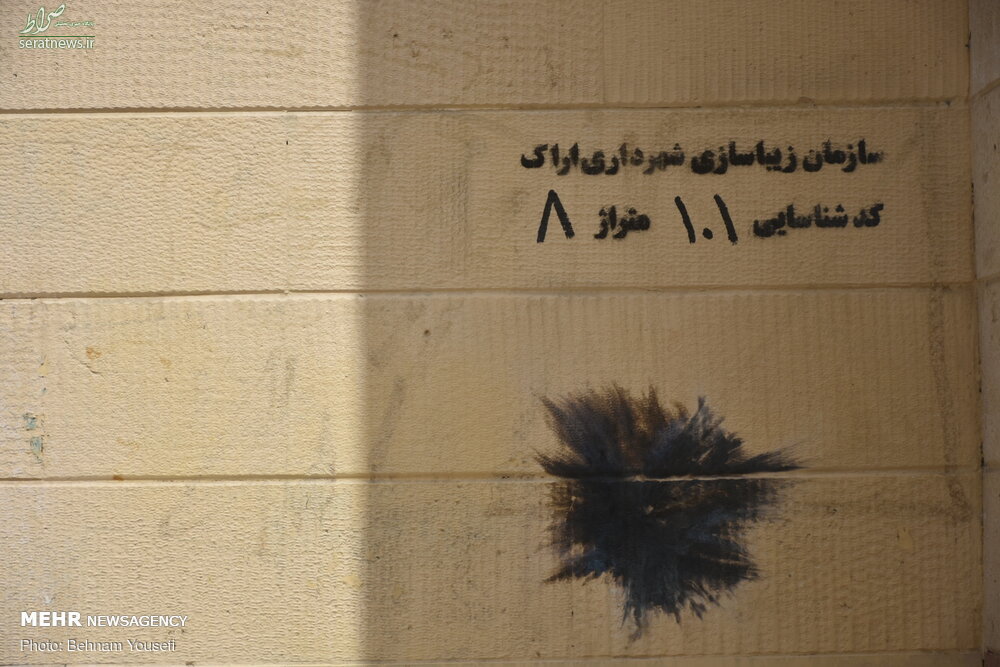 صراط
seratnews.ir
سازمان زیباسازی شهرداری اراک
کد شناسایی ۱۰۱ متراژ ۸
MEHR NEWSAGENCY
Photo: Behnam Yousefi